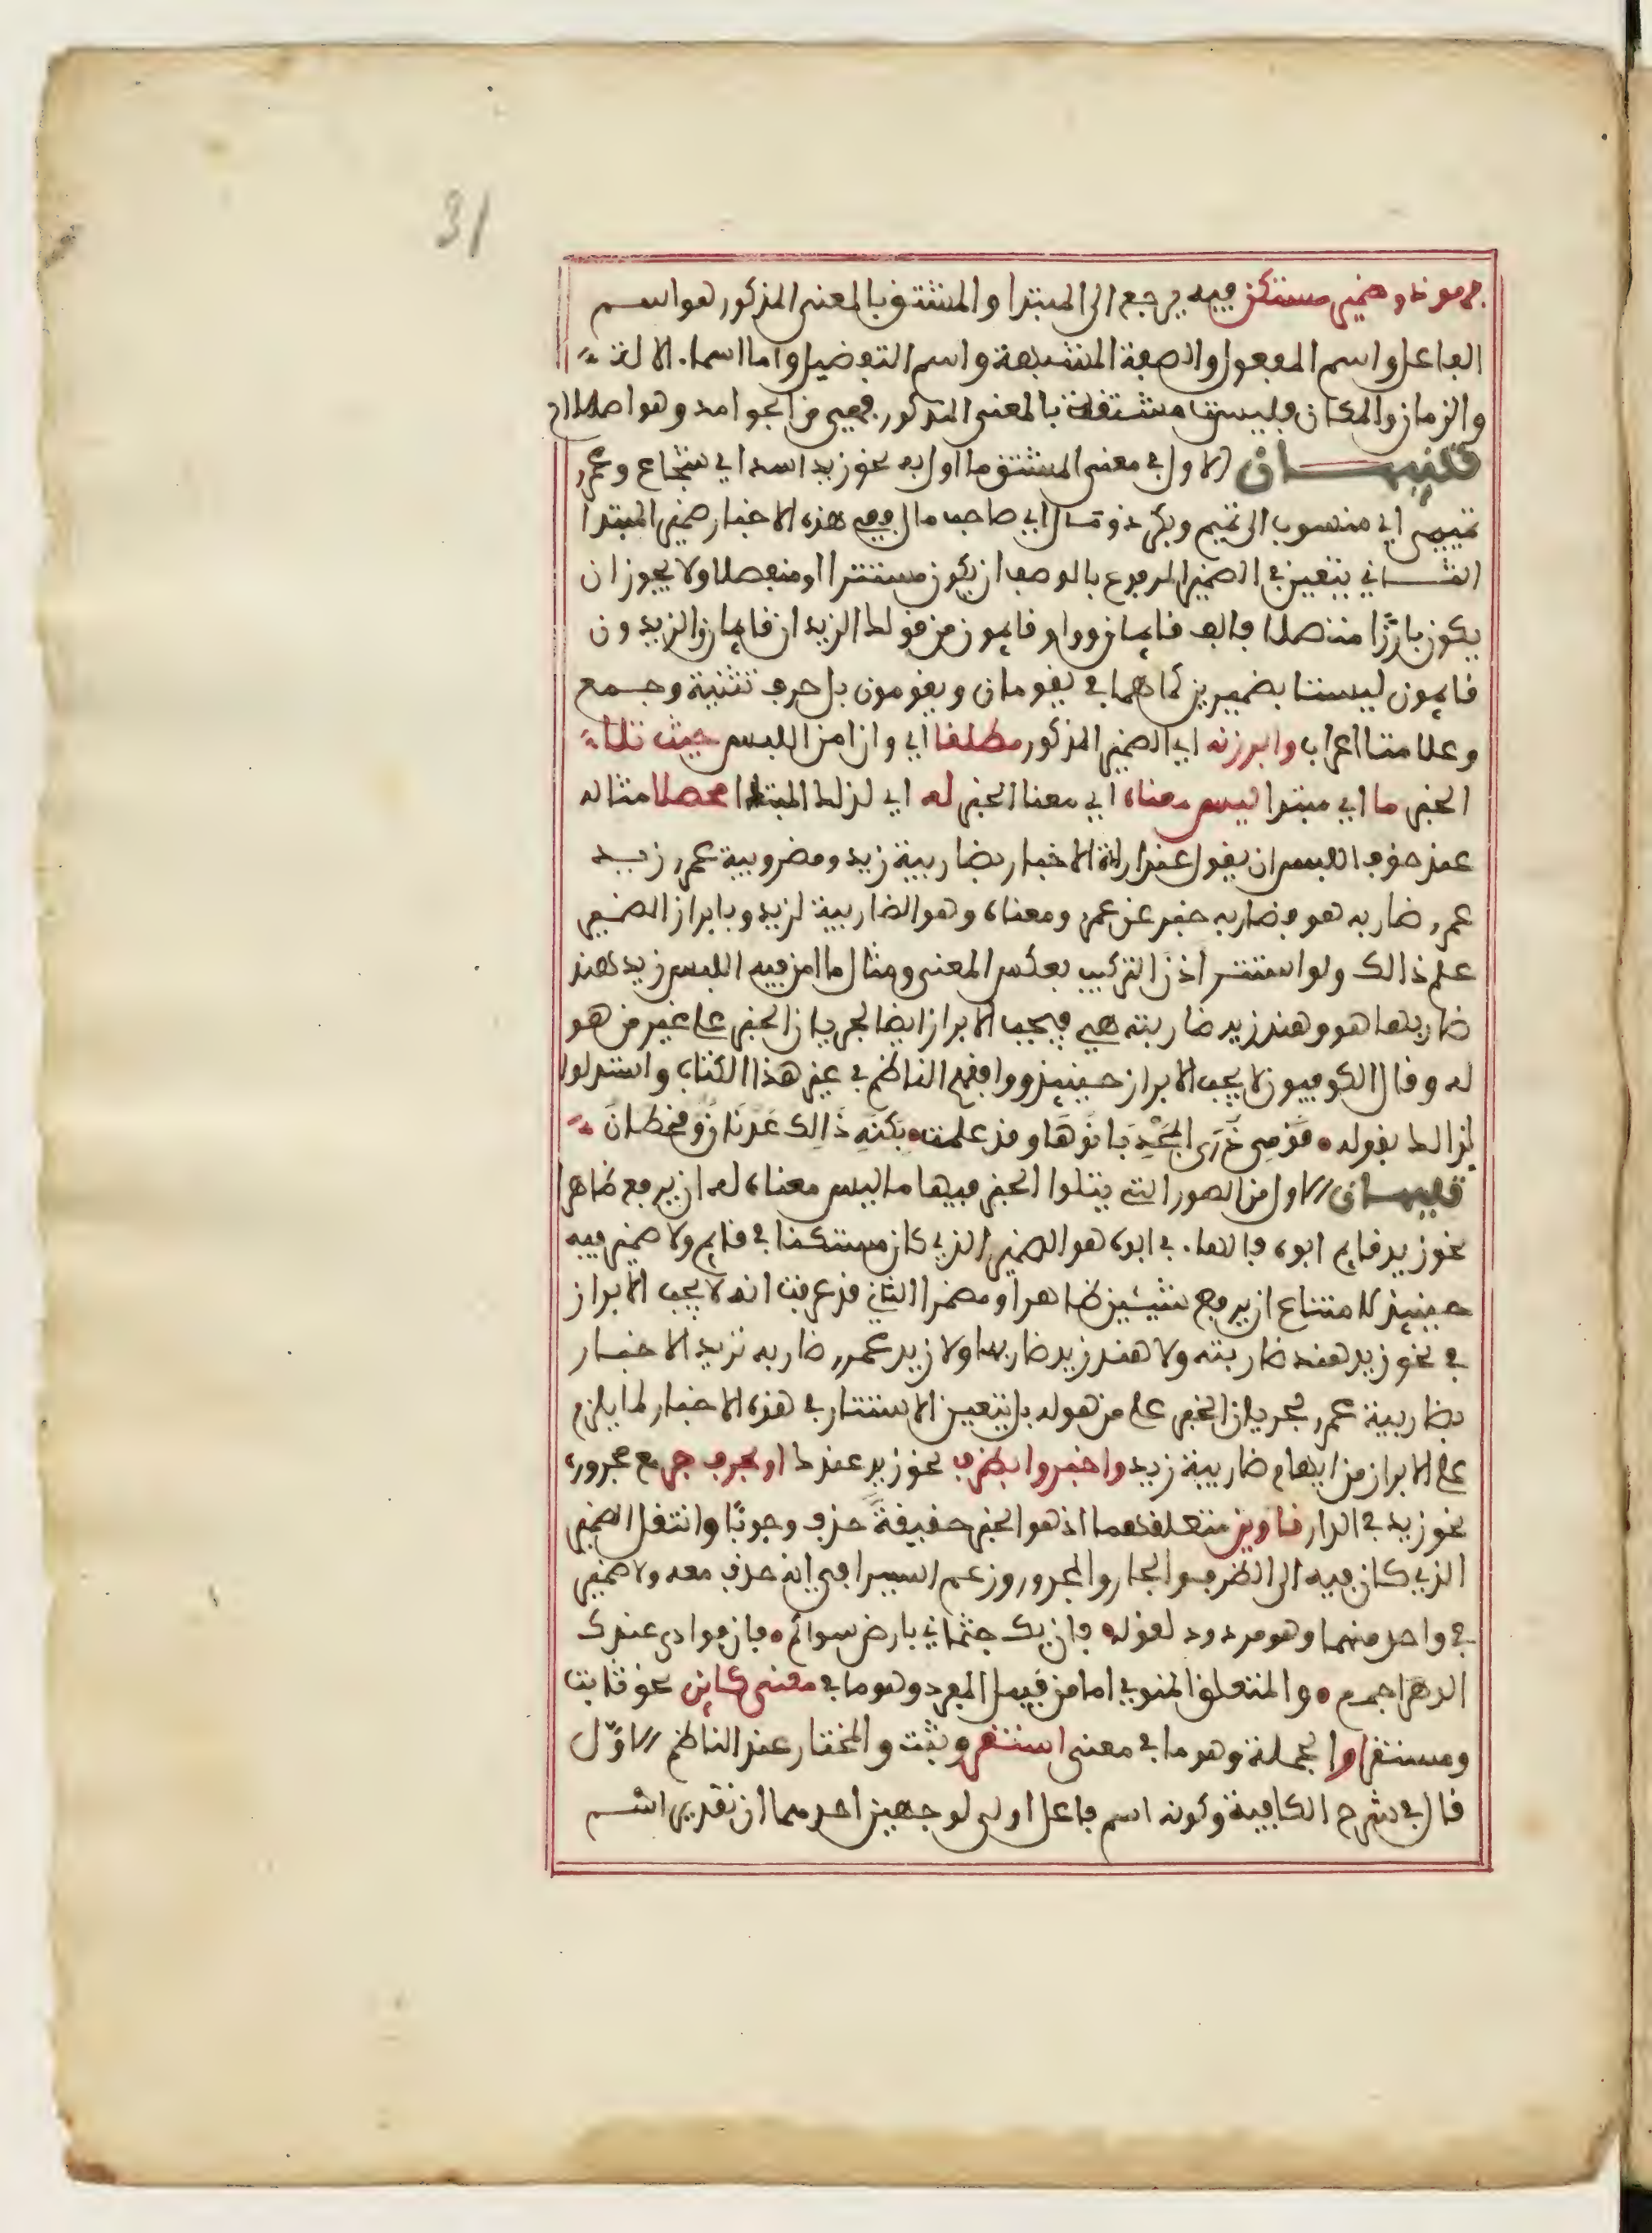 31
فهو ذو ضمير مستكن فيه يرجع الى المبتدا والمشتق بالمعنى المذكور هو اسم
الفاعل واسم المفعول والصفة المشبهة واسم التفضيل واما اسماء الالة
والزمان والمكان فليست مشتقة بالمعنى المذكور فهي من الجوامد وهو اصطلاح
تنبيهان الاول في معنى المشتق ما اول به نحو زيد اسد اي شجاع وعمرو
تميمي اي منسوب الى تميم وبكر ذو مال اي صاحب مال ففي هذه الاخبار ضمير المبتدا
الثاني يتعين في الضمير المرفوع بالوصف ان يكون مستترا او منفصلا ولا يجوز ان
يكون بارزا متصلا فالف قايمان وواو قايمون من قولك الزيدان قايمان والزيدون
قايمون ليستا بضميرين كما هما في يقومان ويقومون بل حرف تثنية وجمع
وعلامتا اعراب وابرزنه اي الضمير المذكور مطلقا اي وان امن اللبس حيث تلا
الخبر ما اي مبتدا ليس معناه اي معنا الخبر له اي لذلك المبتدا محصلا مثاله
عند خوف اللبس ان يقول عند ارادة الاخبار بضاربية زيد ومضروبية عمرو زيد
عمرو ضاربه هو فضاربه خبر عن عمرو ومعناه وهو الضاربية لزيد وبابراز الضمير
علم ذالك ولو استتر اذن التركيب بعكس المعنى ومثال ما امن فيه اللبس زيد هند
ضاربها هو وهند زيد ضاربته هي فيجب الابراز ايضا لجريان الخبر على غير من هو
له وقال الكوفيون لا يجب الابراز حينيذ ووافقهم الناظم في غير هذا الكتاب واستدلوا
لذالك بقوله • قَوْمِى ذُرَى المَجْدِ بَانُوهَا وقد علمت • بكنهِ ذَالِك عَدْنَانٌ وقحطانُ
تنبيهان الاول من الصور التي يتلوا الخبر فيها ما ليس معناه له ان يرفع ظاهرا
نحو زيد قايم ابوه فالهاء في ابوه هو الضمير الذي كان مستكنا في قايم ولا ضمير فيه
حينيذ لامتناع ان يرفع شيئين ظاهرا ومضمرا الثاني قد عرفت انه لا يجب الابراز
في نحو زيد هند ضاربته ولا هند زيد ضاربها ولا زيد عمرو ضاربه تريد الاخبار
بضاربية عمرو لجريان الخبر على من هو له بل يتعين الاستتار في هذه الاخبار لما يلزم
على الابراز من ايهام ضاربية زيد واخبروا بظرف نحو زيد عندك او بحرف جر مع مجروره
نحو زيد في الدار ناوين متعلقهما اذ هو الخبر حقيقةً حذف وجوبًا وانتقل الضمير
الذي كان فيه الى الظرف والجار والمجرور وزعم السيرافي انه حذف معه ولا ضمير
في واحد منهما وهو مردود لقوله • فان يك جثماني بارض سواكم • فان فوادي عندك
الدهر اجمع • والمتعلق المنوي اما من قبيل المفرد وهو ما في معنى كاين نحو ثابت
ومستقر او الجملة وهو ما في معنى استقر وثبت والمختار عند الناظم الاوّل
قال في شرح الكافية وكونه اسم فاعل اولى لوجهين احدهما ان تقدير اسم